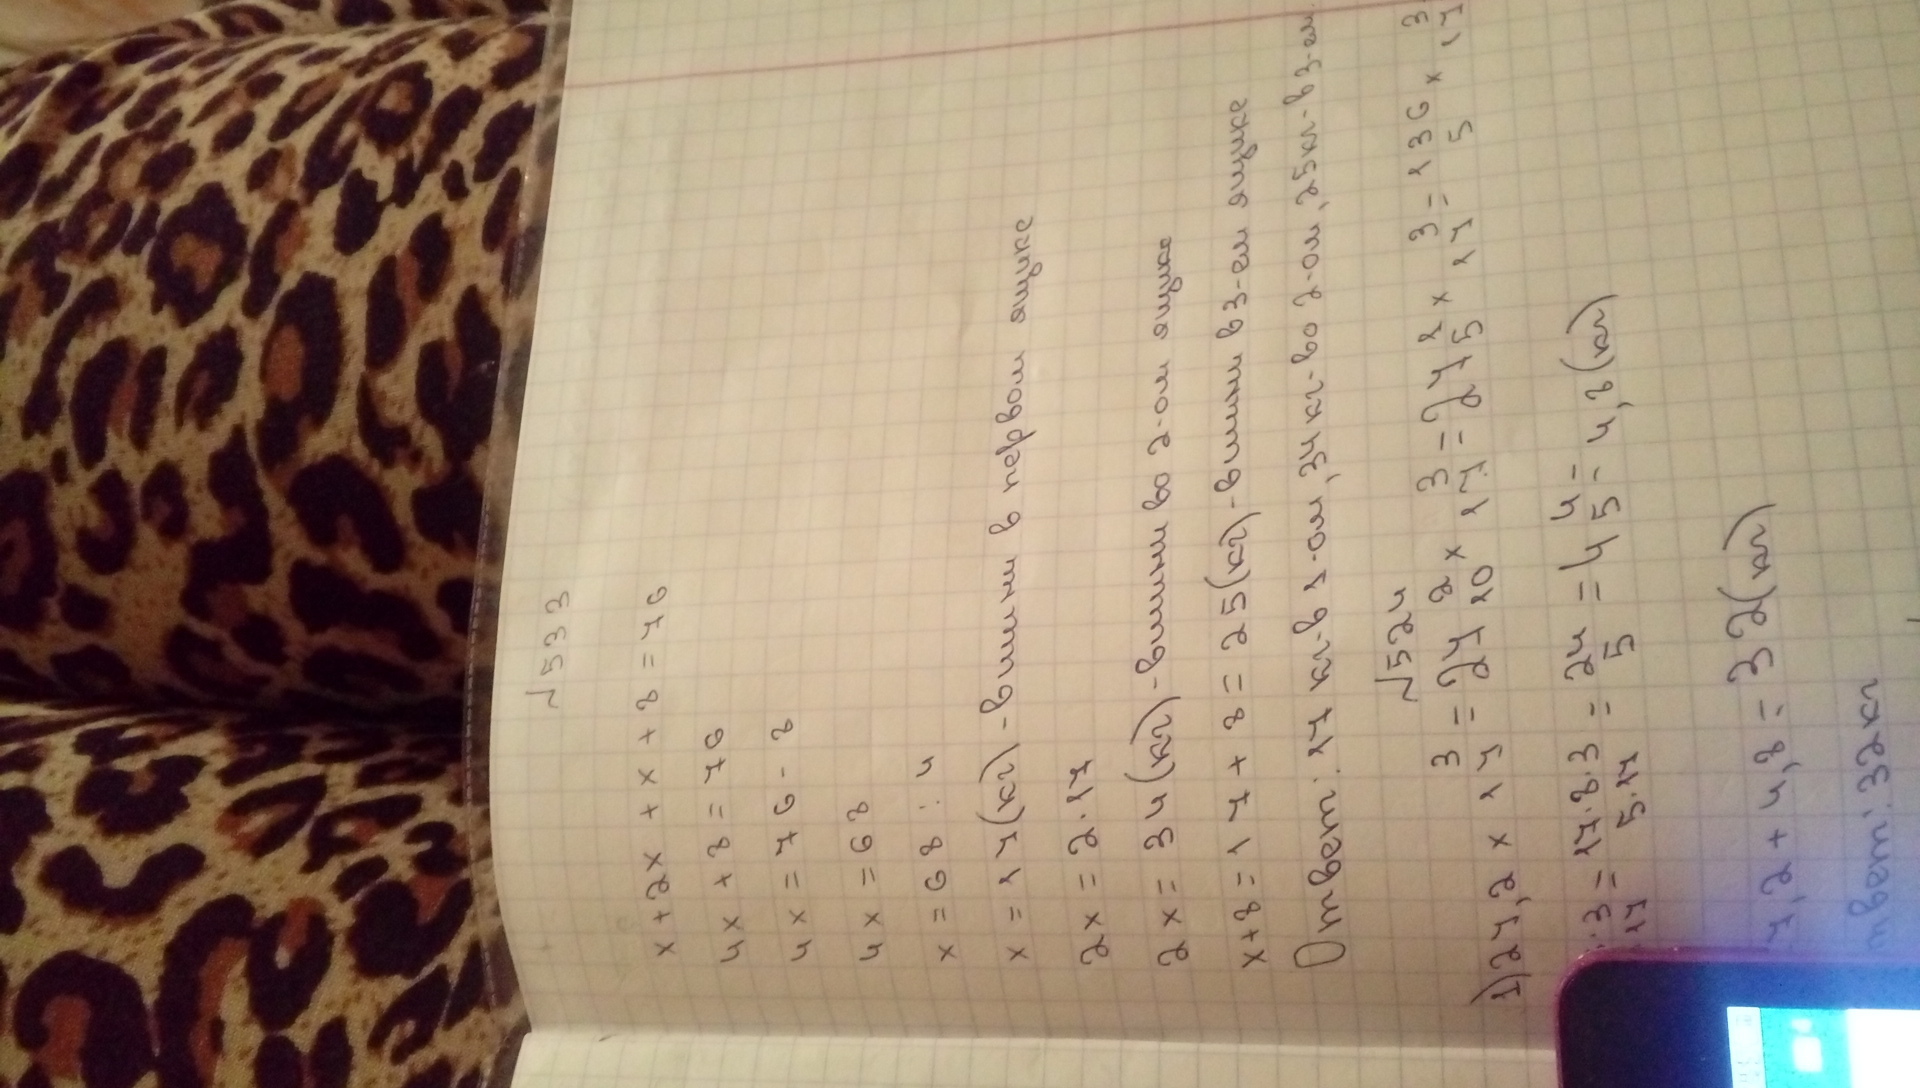 №533
x+2x+x+8=76
4x+8=76
4x=76-8
4x=68
x=68:4
x=17(кг)-вишни в первом ящике
2x=2·17
2x=34(кг)-вишни во 2-ом ящике
x+8=17+8=25(кг)-вишни в 3-ем ящике
Ответ: 17 кг-в 1-ом, 34кг-во 2-ом, 25кг-в 3-ем.
№524
1)27,2 x 3/17 = 27 2/10 x 3/17 = 27 2/5 x 3/17 = 136/5 x 3/17
·3/17 = 17·8·3/5·17 = 24/5 = 4 4/5 = 4,8(кг)
7,2+4,8=32(кг)
твет: 32кг